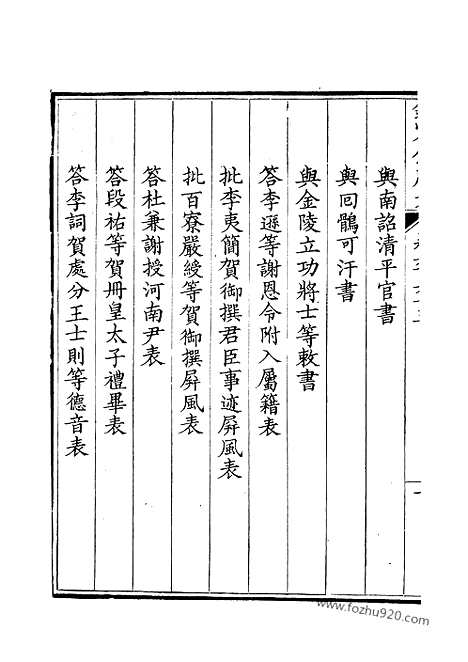 與南詔清平官書
與回鶻可汗書
與金陵立功將士等敕書
答李遜等謝恩令附入屬籍表
批李夷簡賀御撰君臣事迹屏風表
批百寮嚴綬等賀御撰屏風表
答杜兼謝授河南尹表
答段祐等賀冊皇太子禮畢表
答李詞賀處分王士則等德音表
www.fozhu920.com